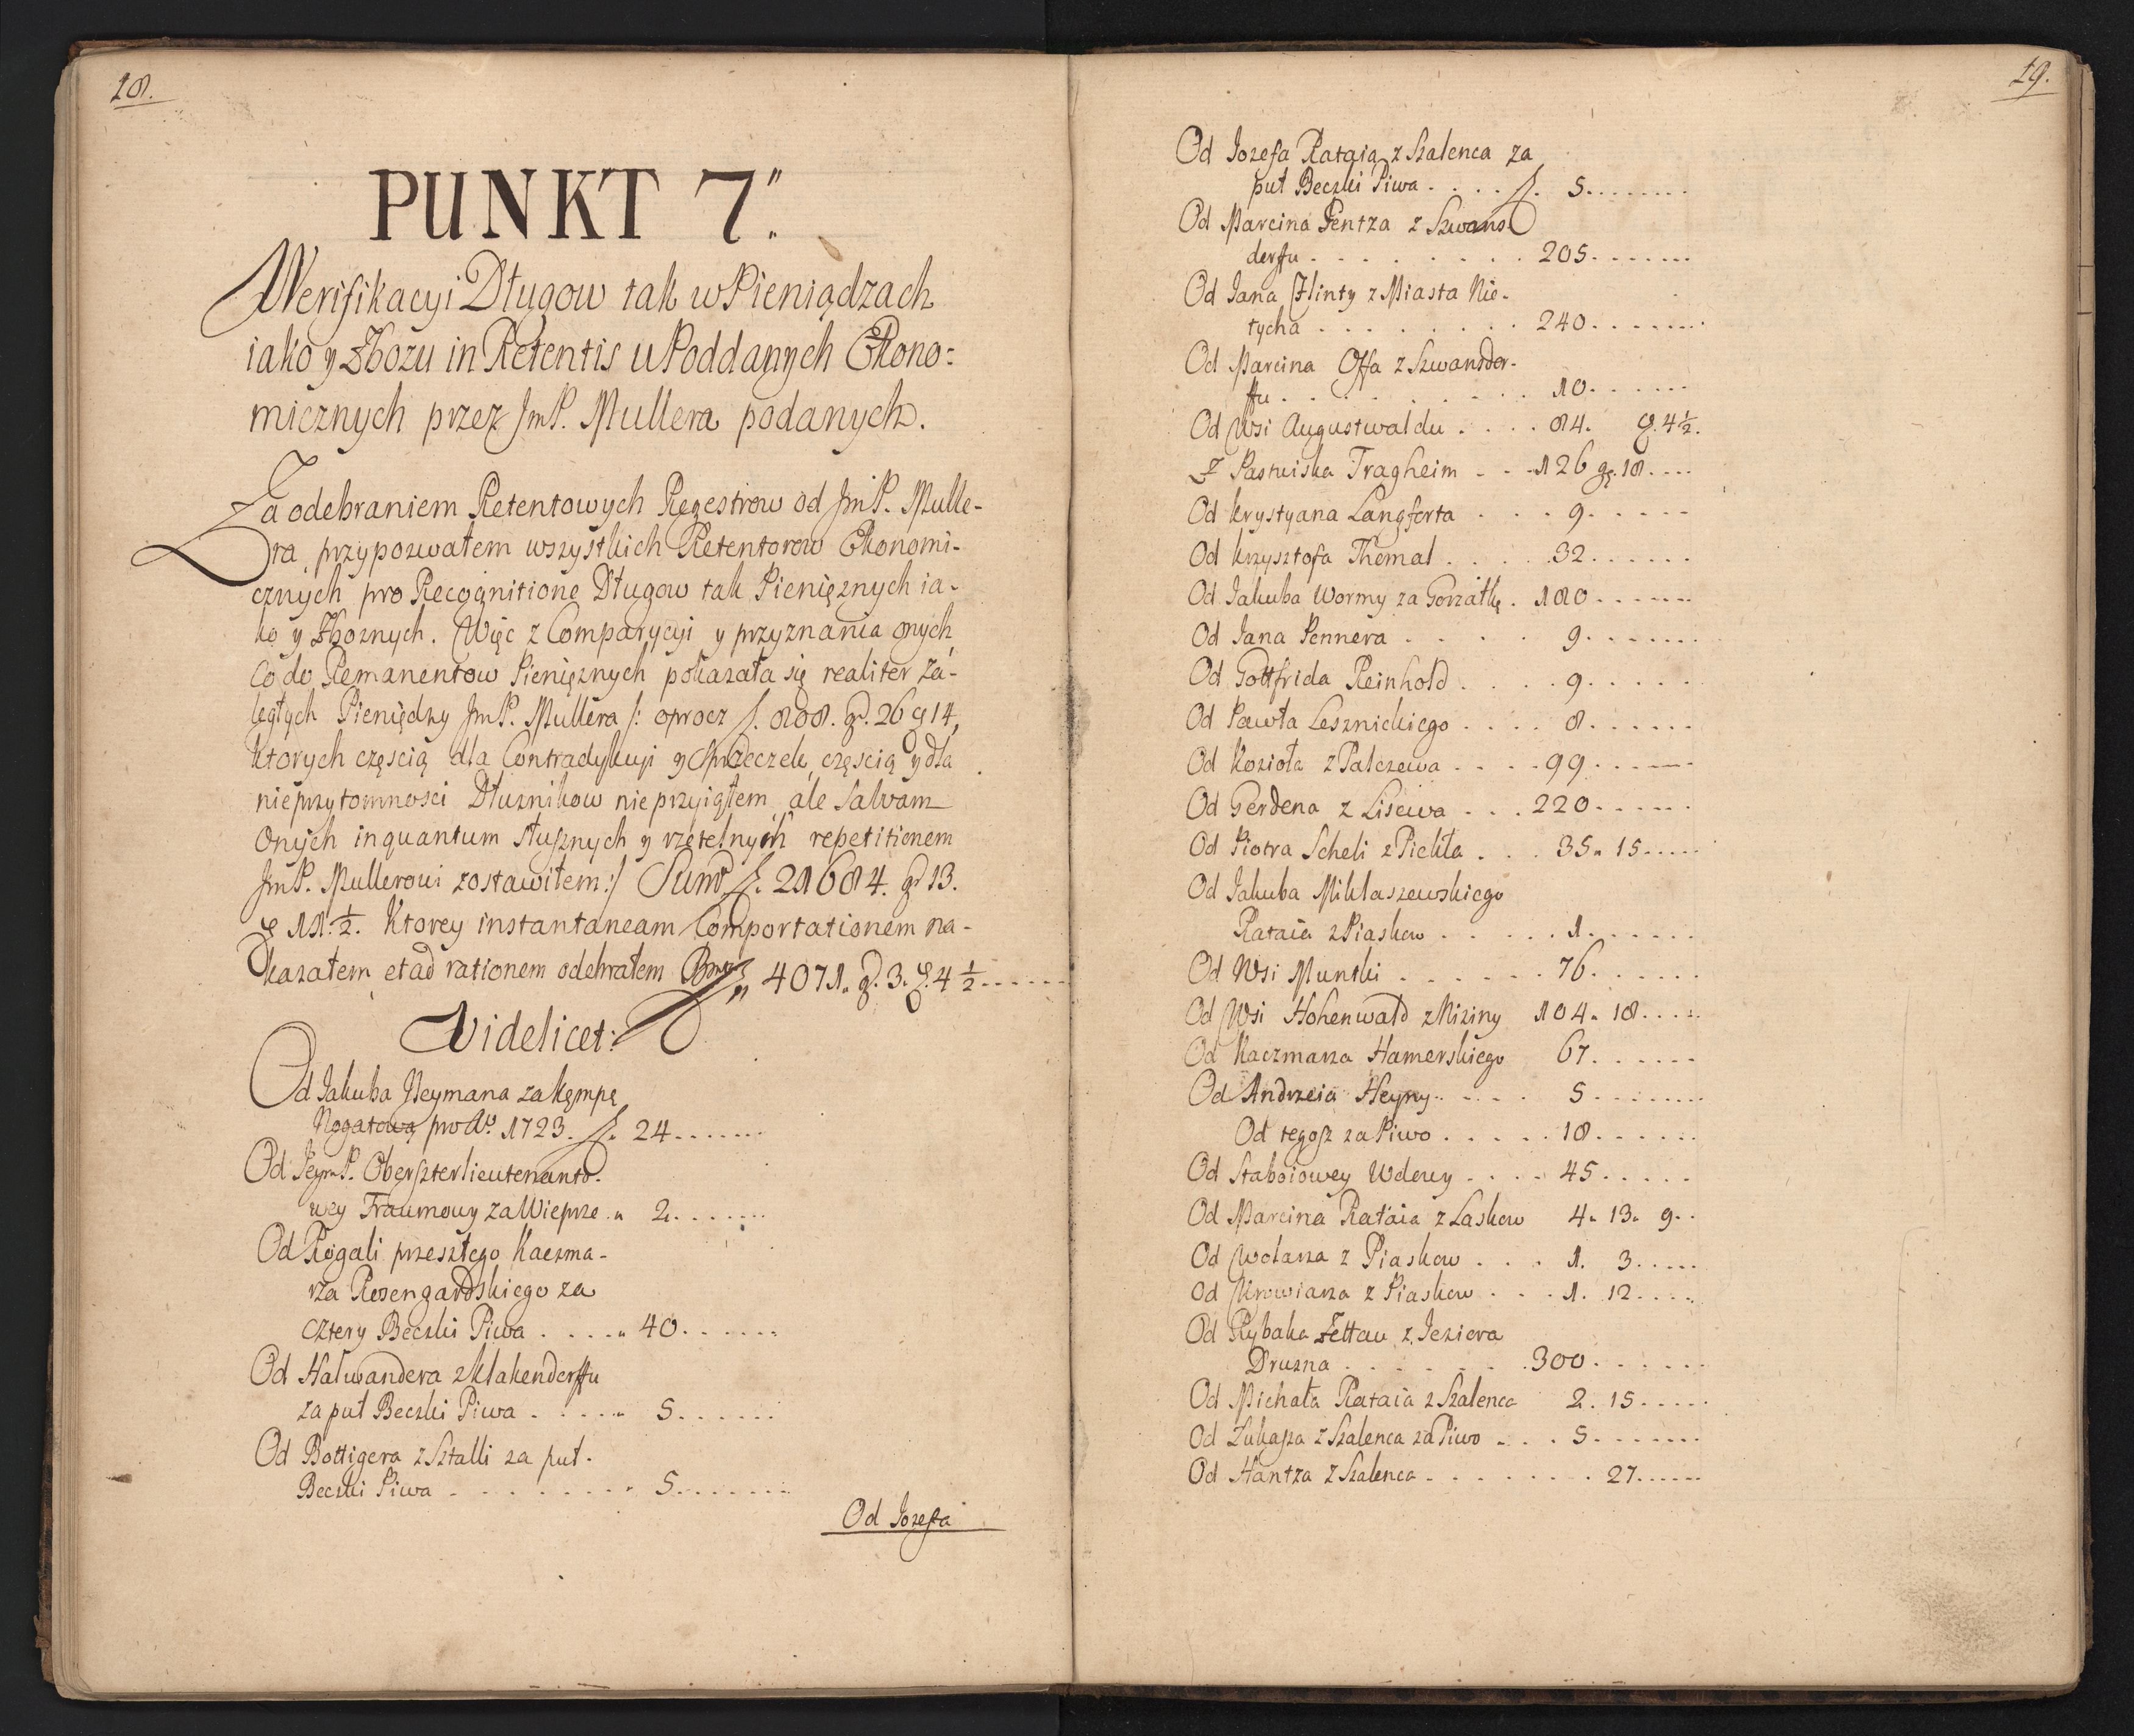 18.
PUNKT 7."
Weryfikacyi Długow tak w Pieniądzach
iako y Zbożu in Retentis u Poddanych Ekono=
micznych przez JmP. Mullera podanych.
Za odebraniem Retentowych Regestrow od JmP. Mulle-
ra, przypozwałem wszystkich Retentorow Ekonomi-
cznych pro Recognitione Długow tak Pieniężnych ia-
ko y Zbożnych. Więc z Comparycyi y przyznania onych
Co do Remanentow Pieniężnych pokazała się realiter Za-
ległych Pieniędzy JmP. Mullera /: oprocz f. 808. gr. 26 14,
ktorych częscią dla Contradykcyi y Sprzeczek, częscią y dla
nieprzytomnosci Dłużnikow nie przyiąłem, ale Salvam
Onych inquantum słusznych y rzetelnych repetitionem
JmP. Mullerowi zostawiłem :/ Sum̃a f. 21684. gr 13.
11.½. Ktorey instantaneam Comportationem na-
kazałem, et ad rationem odebrałem f " 4071. g. 3. 4½......
Videlicet:
Od Jakuba Neymana za kępę
Nogatową pro Ao. 1723. f. 24.......
Od JeymP. Oberszterlieutenanto.
wzy Traumowy za Wieprze " 2.......
Od Rogali przeszłego Kaczma-
rza Rosengardskiego za
cztery Beczki Piwa . . . . " 40......
Od Halwandera z Klakendorffu
za puł Beczki Piwa . . . . " 5......
Od Bottigera z Sztalli za puł.
Beczki Piwa . . . . . . . . " 5.......
Od Jozefa
19.
Od Jozefa Rataia z Szalenca za
puł Beczki Piwa . . . . f. 5.......
Od Marcina Pentza z Szwans
dorffu . . . . . . . . 205.......
Od Jana Flinty z Miasta Nie-
tycha . . . . . . . . 240.......
Od Marcina Offa z Szwansdor-
ffu . . . . . . . . . 10......
Od Wsi Augustwaldu . . . . 84. 4½.
Z Pastwiska Tragheim . . . 126 g. 18....
Od Krystyana Langferta . . . 9......
Od Krzysztofa Themal . . . . . 32......
Od Jakuba Wormy za Gorzałkę . 180......
Od Jana Pennera . . . . . 9.......
Od Gottfrida Reinhold . . . . 9.....
Od Pawła Lesznickiego . . . . 8......
Od Kozioła z Palczewa . . . . 99......
Od Gerdena z Lisewa . . . 220......
Od Piotra Scheli z Piekła . . . 35 " 15.....
Od Jakuba Miklaszewskiego
Rataia z Piaskow . . . . . 1......
Od Wsi Munski . . . . . . 76......
Od Wsi Hohenwald z Niziny 104 " 18....
Od Kaczmarza Hamerskiego 67......
Od Andrzeia Heyny . . . . 5.......
Od tegosz za Piwo . . . . . 18......
Od Staboiowey Wdowy . . . . 45.....
Od Marcina Rataia z Laskow 4 " 13 " 9..
Od Wolarza z Piaskow . . . 1. 3.....
Od Krowiarza z Piaskow . . . 1. 12....
Od Rybaka Zettau z Jeziora
Druzna . . . . . . . 300......
Od Michała Rataia z Szalenca 2. 15.....
Od Łukasza z Szalenca za Piwo . . . 5.......
Od Hantza z Szalenca . . . . . . . 27......